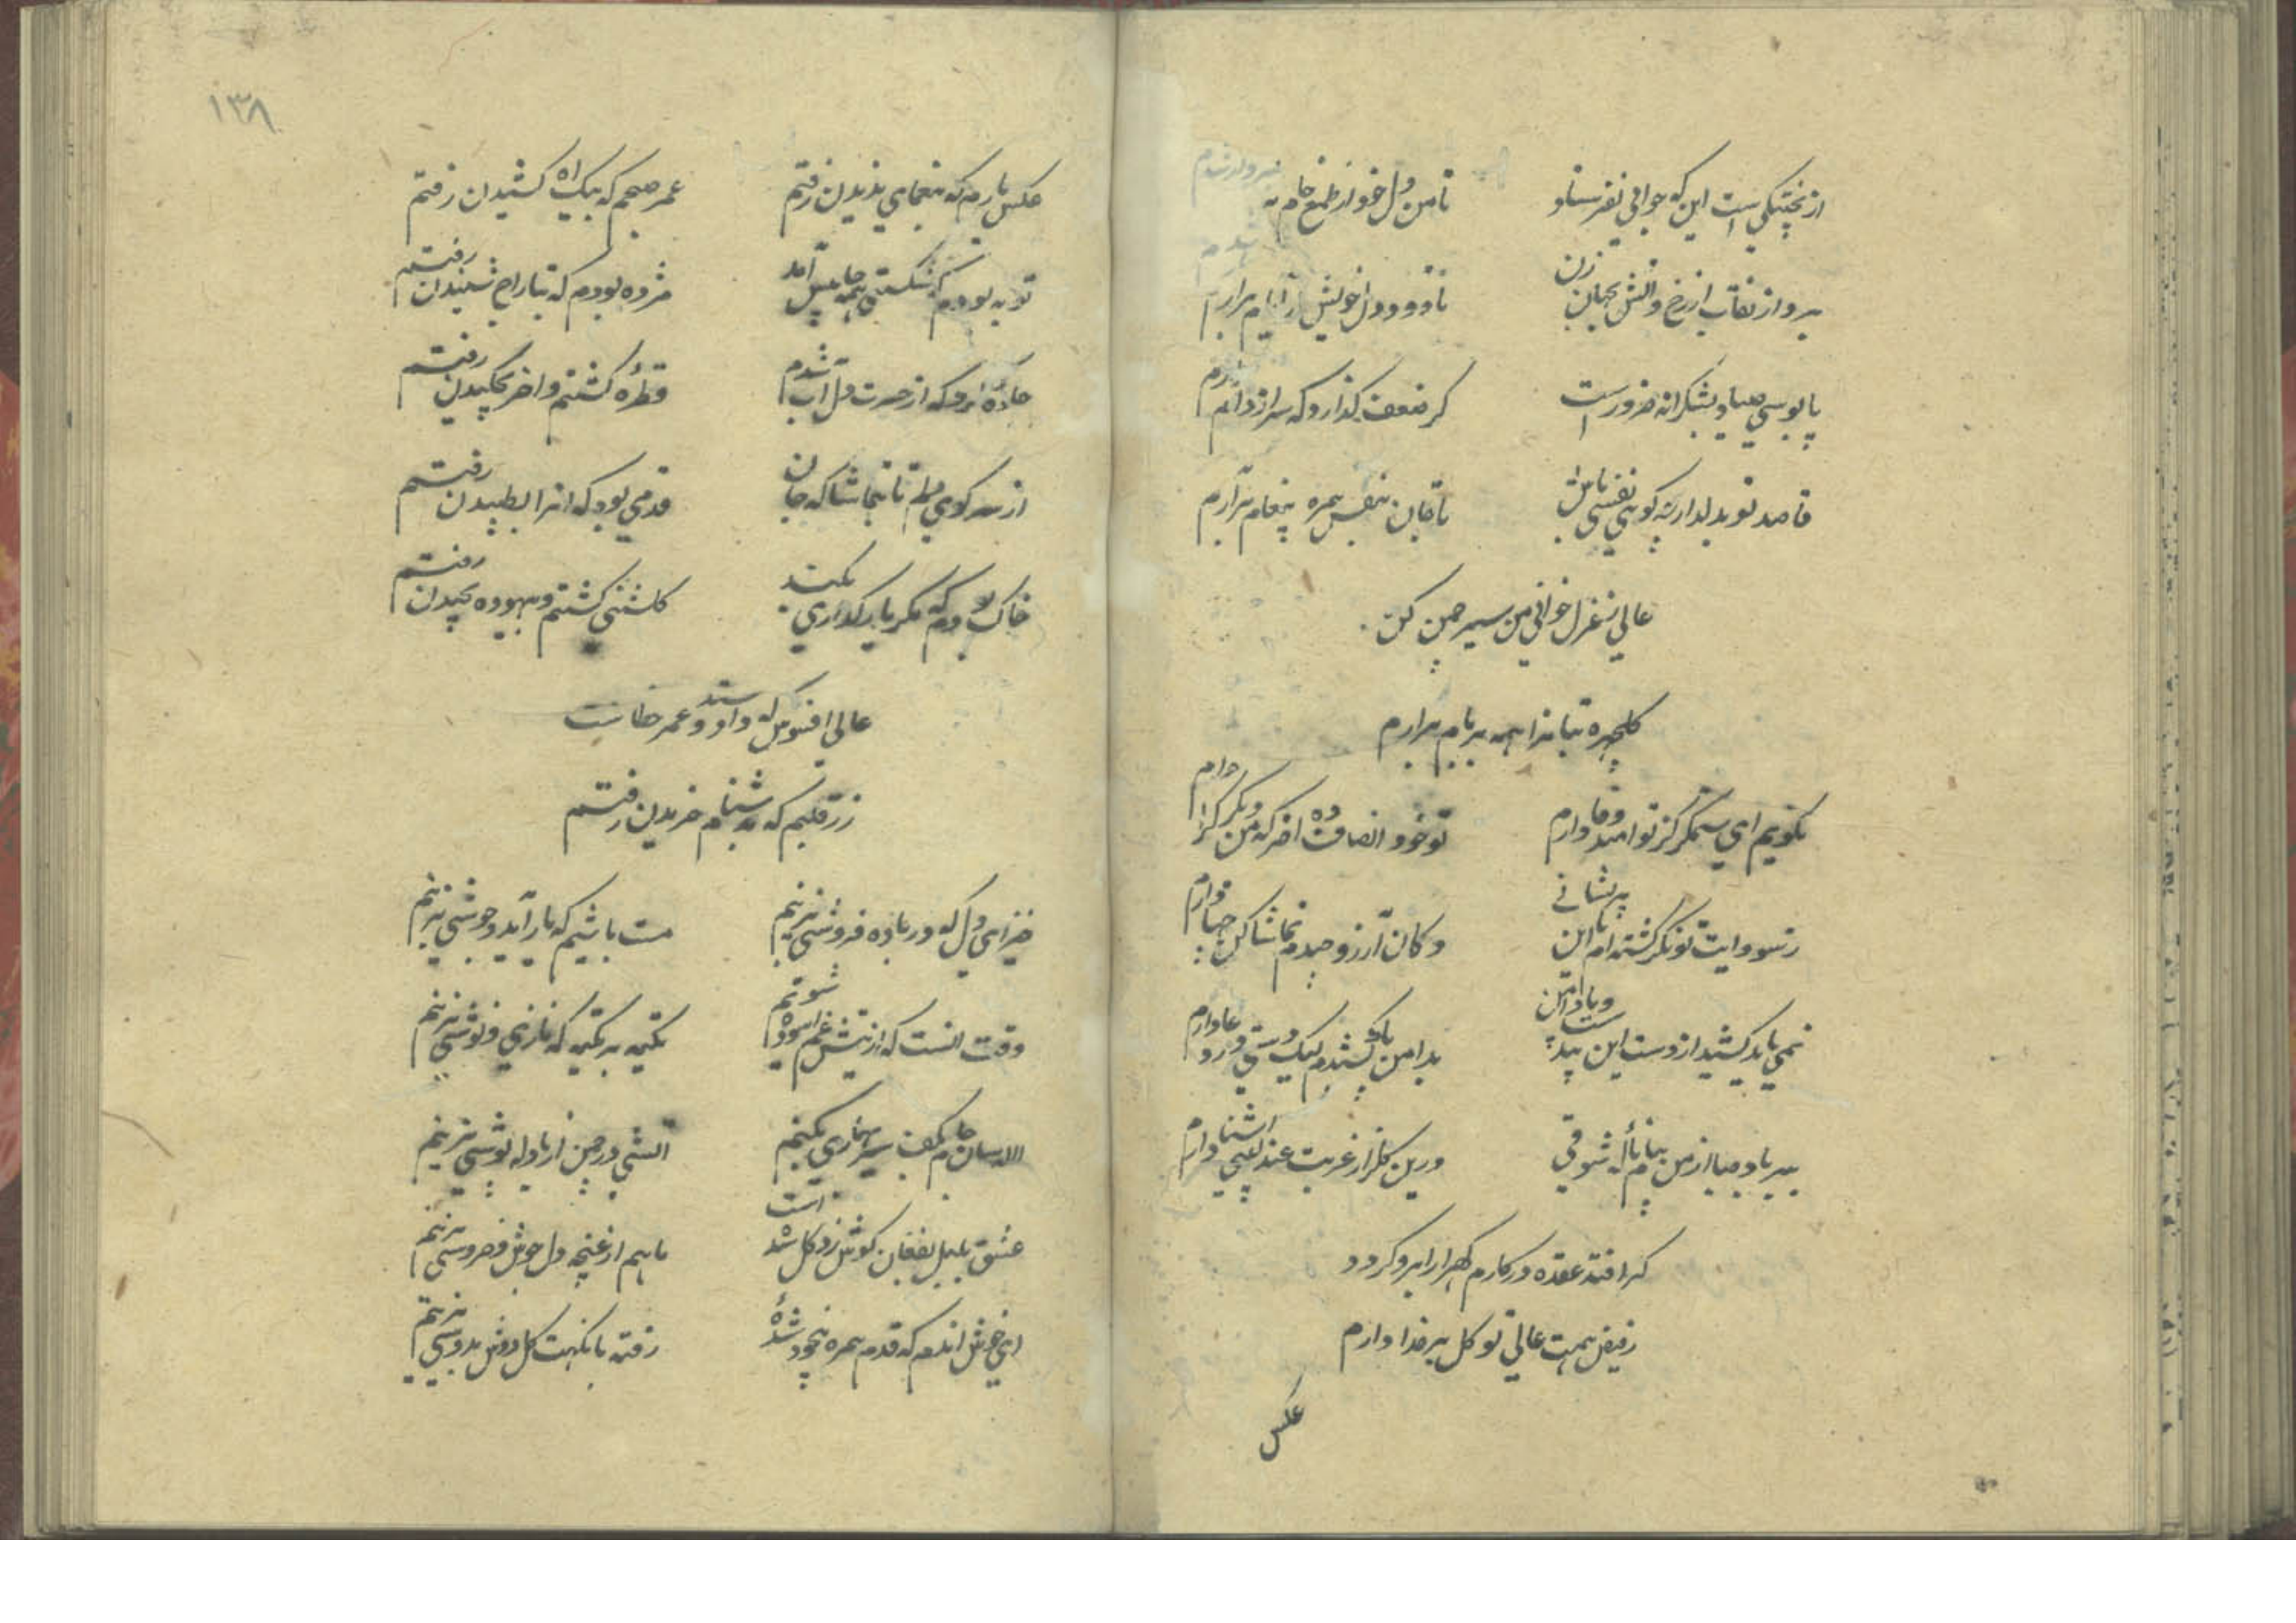 از پختگی است این که جوابی نفرستاد
تا من دل خود از طمع خام برارم
بردار نقاب از رخ و آتش بجهان زن
تا دود دل خویش ز ایام برارم
پابوسی صیاد بشکرانه ضرور است
گر ضعف گذارد که سر از دام برارم
قاصد تو بدلدار چه گویی نفسی باش
تا جان بنفس همره پیغام برارم
عالی ز غزل خوانی من سیر چمن کن
گلچهره بتانرا همه بر بام برارم
نگویم ای ستمگر کز تو امید وفا دارم
تو خود انصاف ده اخر که من دیگر کرا دارم
ز سودایت تو نگر گشته ام با این پریشانی
دکان آرزو چیدم تماشا کن چها دارم
نمی باید کشید از دست این بید ست و پا دامن
بدامن پا کشیدم لیک دستی در دعا دارم
ببر باد صبا از من پیام ناله شوقی
درین گلزار غربت عندلیبی اشنا دارم
گر افتد عقده در کارم گهر ارا برو گردد
ز فیض همت عالی توکل بر خدا دارم
عکس
۱۳۸
عکس یارم که بیغمای ندیدن رفتم
عمر صبحم که بیک اه کشیدن رفتم
توبه بودم که شکستن همه جا پیش آمد
مژده بودم که بتاراج شنیدن رفتم
جاده ابرو که از حسرت دل آب شدم
قطره گشتم و اخر بچکیدن رفتم
از سر کوی تا بتماشا که جان
قدمی بود که انرا بطپیدن رفتم
خاک بودم که مگر یار گذاری بکند
گلشنی گشتم و بیهوده بچیدن رفتم
عالی افسوس که داد و ستد عمر خطاست
زر قلبم که بدشنام خریدن رفتم
خیز ای دل که در باده فروشی بزنیم
مست باشیم که یار آید و جوشی بزنیم
وقت انست که از تپش غم اسوده شویم
تکیه بر تکیه که نازی و نوشی بزنیم
لاله سان جام بکف سیر بهاری بکنیم
آتشی در چمن از باده نوشی بزنیم
عشق بلبل بفغان گوش زد گل شده است
ما هم از غنچه دل جوش و خروشی بزنیم
ای خوش اندم که قدم همره بیخود شدۀ
رفته با نکهت گل دوش بدوشی بزنیم